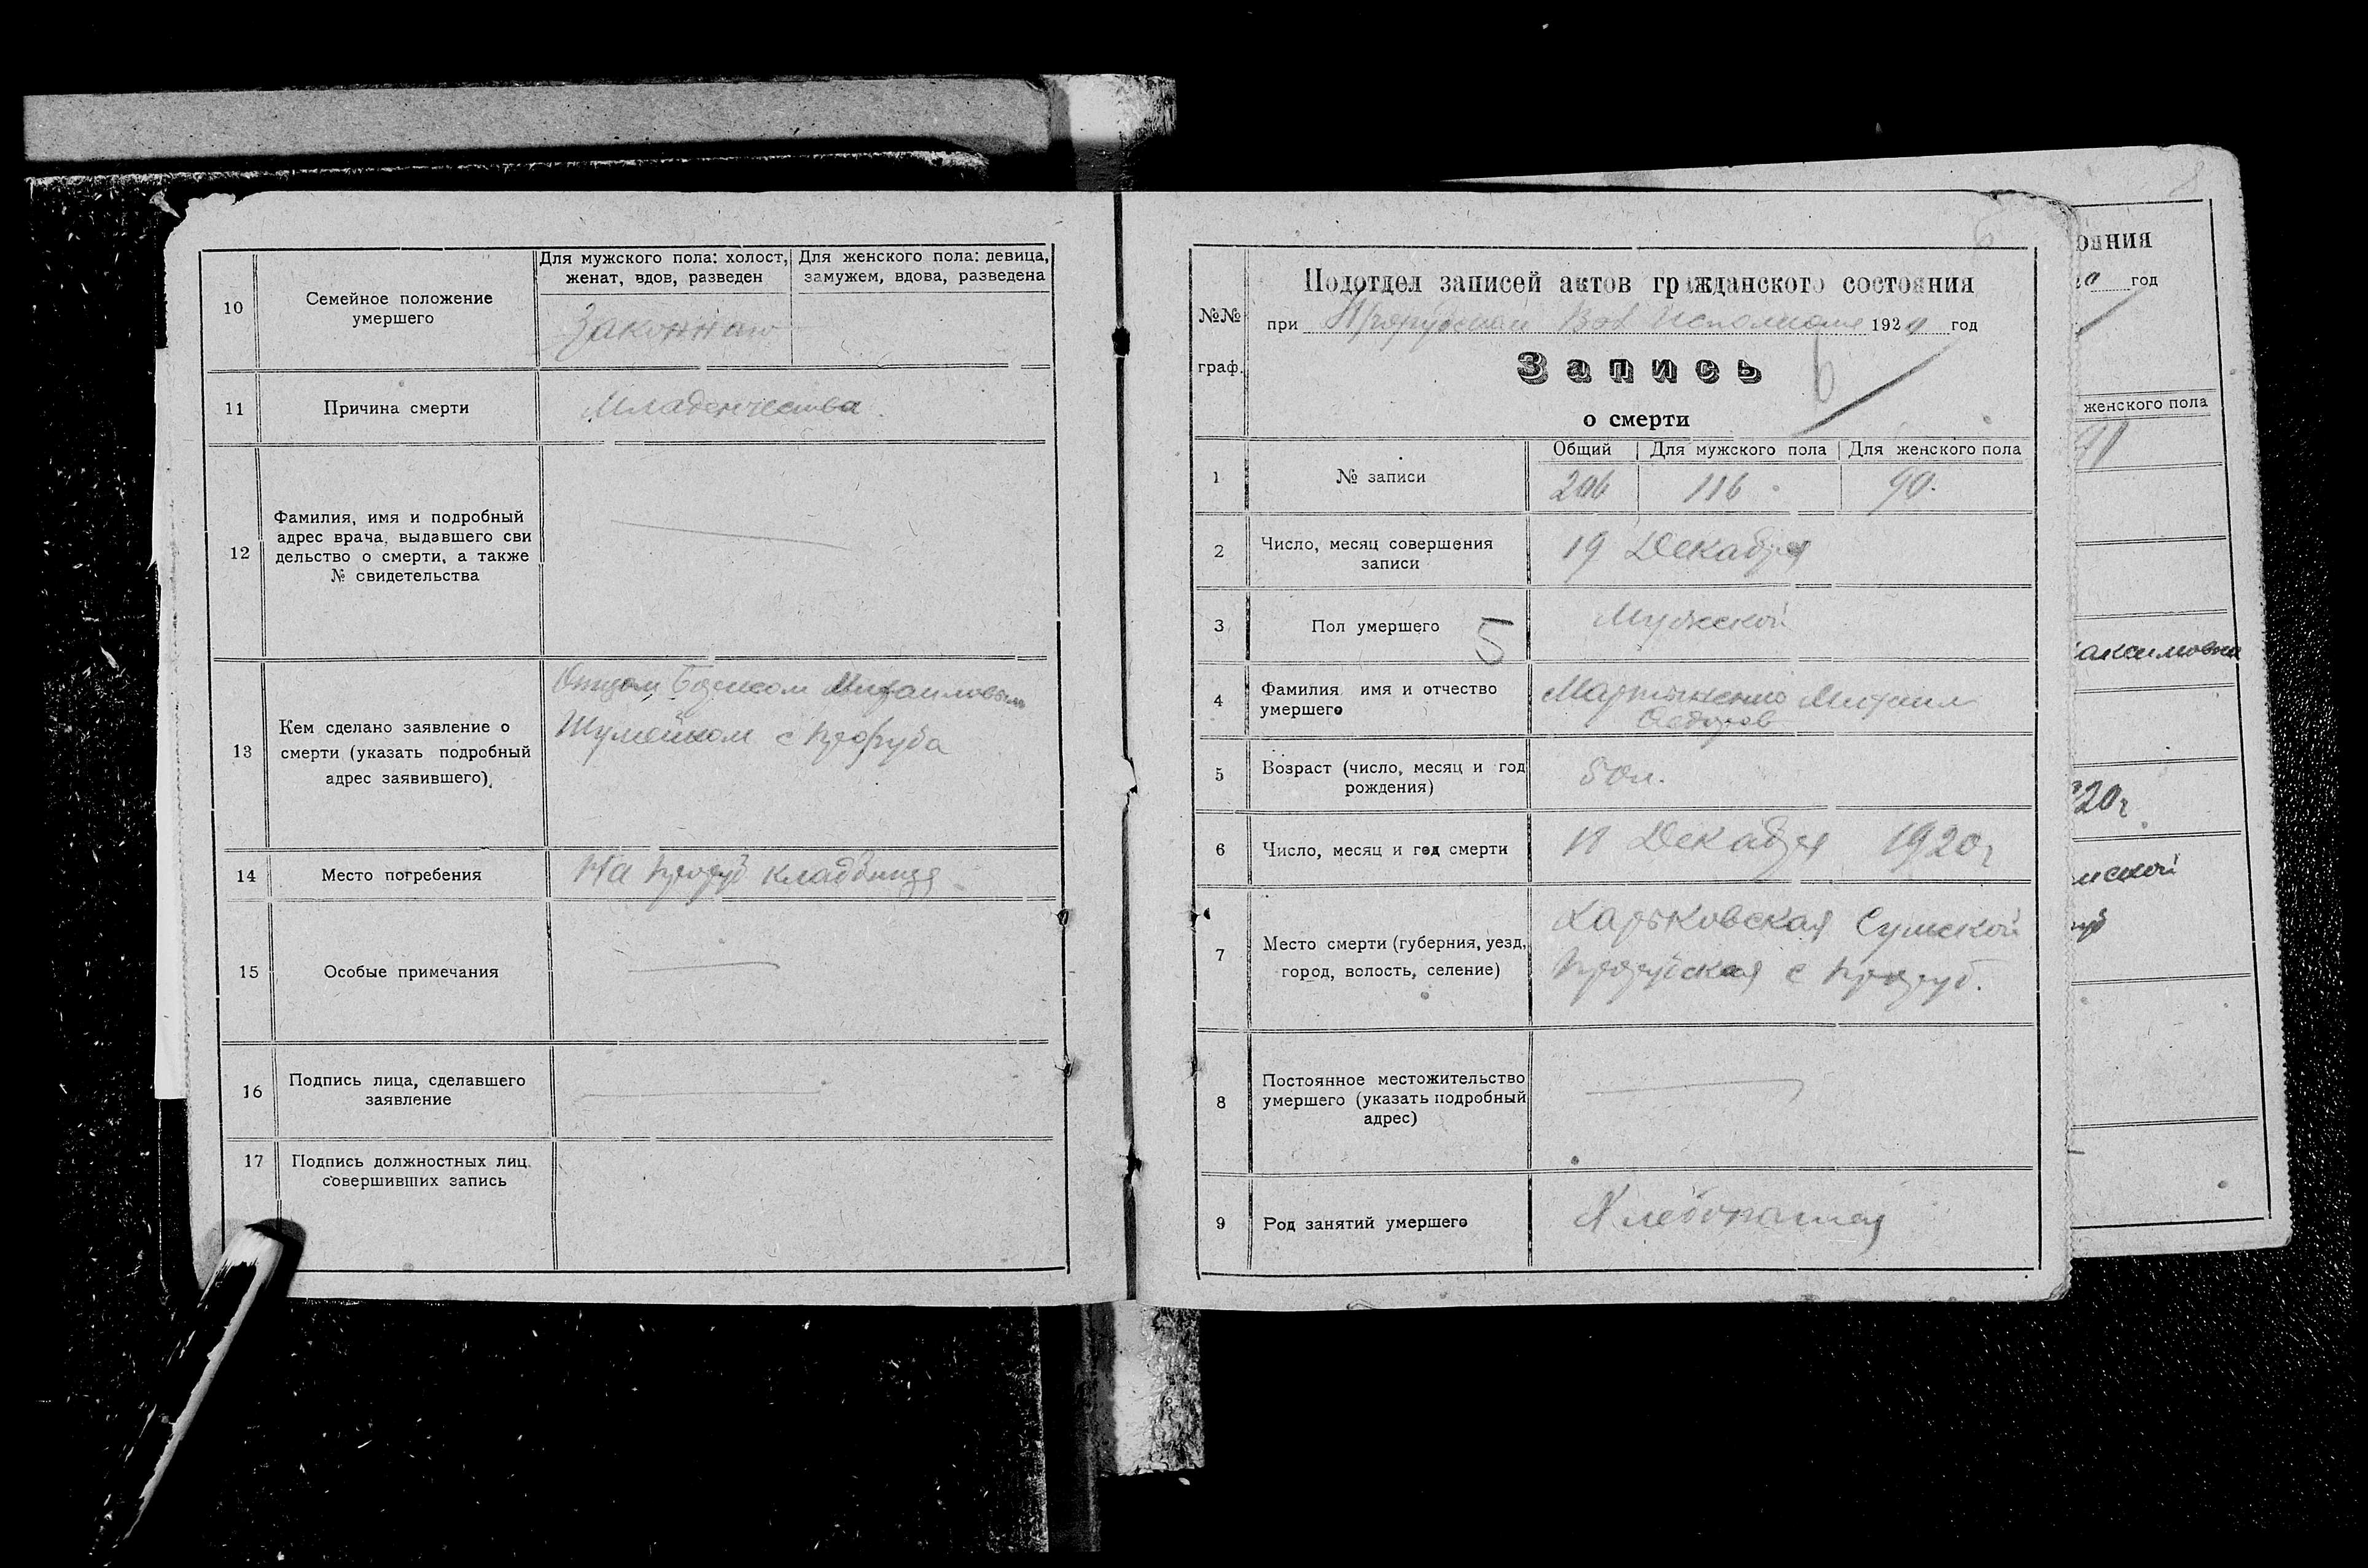 10
Семейное положение
умершего
Для мужского пола: холост,
женат, вдов, разведен
Для женского пола: девица,
замужем, вдова, разведена
Законного
11
Причина смерти
Младенчества.
12
Фамилия, имя и подробный
адрес врача, выдавшего сви
дельство о смерти, а также
№ свидетельства
13
Кем сделано заявление о
смерти (указать подробный
адрес заявившего)
Отцом Борисом Михаиловым
Шумейком с Проруба
14
Место погребения
На Проруб кладбище
15
Особые примечания
16
Подпись лица, сделавшего
заявление
17
Подпись должностных лиц
совершивших запись
6
№№
граф.
Подотдел записей актов гражданского состояния
при Прорубском Вол Исполкоме 1920 год
Запись
6
о смерти
1
№ записи
Общий
Для мужского пола
Для женского пола
206
116
90.
2
Число, месяц совершения
записи
19 Декабря
3
Пол умершего
5
Мужской
4
Фамилия имя и отчество
умершего
Мартыненко Михаил
Федоров
5
Возраст (число, месяц и год
рождения)
50л.
6
Число, месяц и год смерти
18 Декабря 1920г
7
Место смерти (губерния, уезд,
город, волость, селение)
Харьковская Сумской
Прорубская с Проруб.
8
Постоянное местожительство
умершего (указать подробный
адрес)
9
Род занятий умершего
Хлебопашец
8
ояния
20 год
женского пола
91
аксимовна
920г
мской
руб